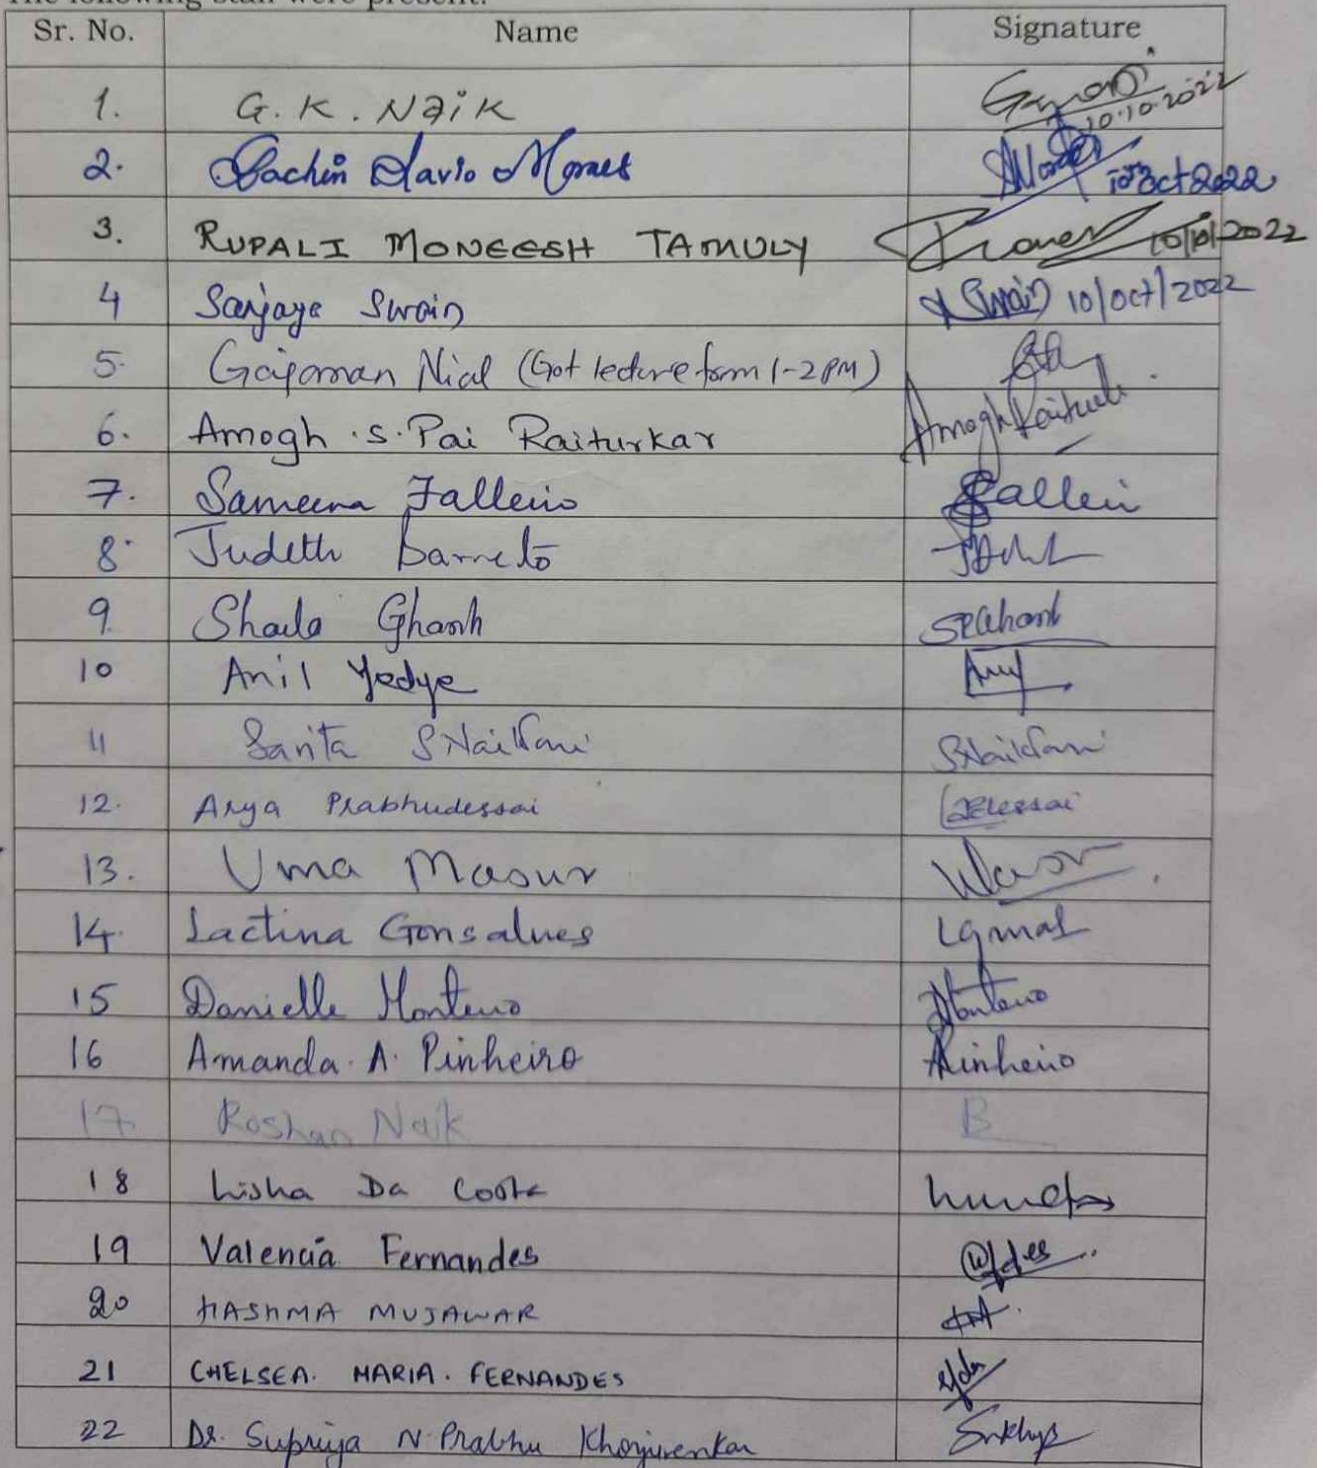 The following staff were present:
Sr. No. Name Signature
1. G. K. Naik 10.10.2022
2. Sachin Savio Moraes 10 Oct 2022
3. RUPALI MONEESH TAMULY 10/10/2022
4 Sanjaya Swain Swain 10/Oct/2022
5. Gajaman Nial (Got lecture form 1-2 PM)
6. Amogh .S. Pai Raiturkar Amogh Raiturkar
7. Sameena Falleiro Falleiro
8. Judeth Barreto
9. Shaila Ghanti
10 Anil Yedge
11 Sarita S Naik Tari S Naik Tari
12. Arya Prabhudessai
13. Uma Masur
14. Lactina Gonsalves
15 Danielle Monteiro Monteiro
16 Amanda. A. Pinheiro Pinheiro
17 Roshan Naik
18 Lisha Da Costa
19 Valencia Fernandes
20 HASHMA MUJAWAR
21 CHELSEA. MARIA. FERNANDES
22 Dr. Supriya N Prabhu Khorjuvenkar